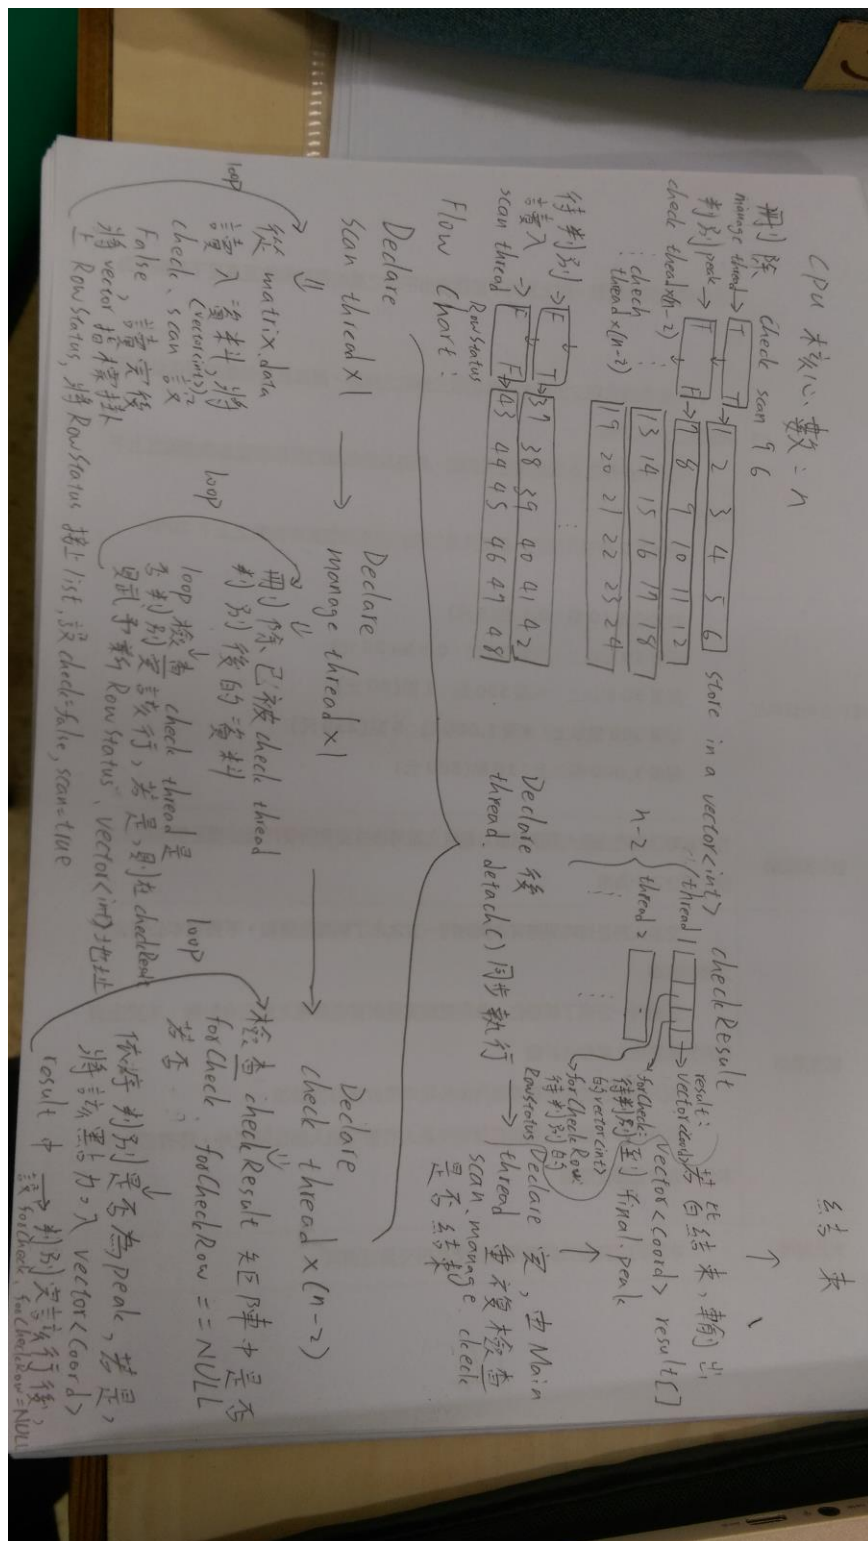 CPU 核心數 = n
刪除 check scan 9 6
manage thread → T T → 1 2 3 4 5 6
判別peak → T F → 7 8 9 10 11 12
check thread×(n-2)
13 14 15 16 17 18
: check
thread×(n-2)
19 20 21 22 23 24
待判別 → F T → 37 38 39 40 41 42
讀入 → F F → 43 44 45 46 47 48
scan thread
RowStatus
store in a vector<int>
checkResult
n-2
thread 1
thread 2
result:
vector<coord>
forCheck:
待判別
的vector<int>
forCheckRow
待判別的
RowStatus
若皆結束, 輸出
vector<coord> result[]
到 final.peak
結束
Flow Chart:
Declare
scan thread×1
Declare
manage thread×1
Declare
check thread×(n-2)
Declare 後
thread.detach()同步執行
Declare 完, 由 Main
thread 重複檢查
scan, manage, check
是否結束
loop
從 matrix.data
讀入資料, 將
(vector<int>)之
check、scan 設
False, 讀完後
將 vector 指標掛
上 RowStatus, 將 RowStatus 接上 list, 設 check=false, scan=true
loop
刪除已被 check thread
判別後的資料
loop 檢查 check thread 是
否判別完該行, 若是, 則在 checkResult
賦予新 RowStatus、vector<int>地址
loop
檢查 checkResult 矩陣中是否
forCheck, forCheckRow == NULL
若否,
依序判別是否為peak, 若是,
將該點加入 vector<Coord>
result 中 → 判別完該行後,
設 forCheck, forCheckRow=NULL